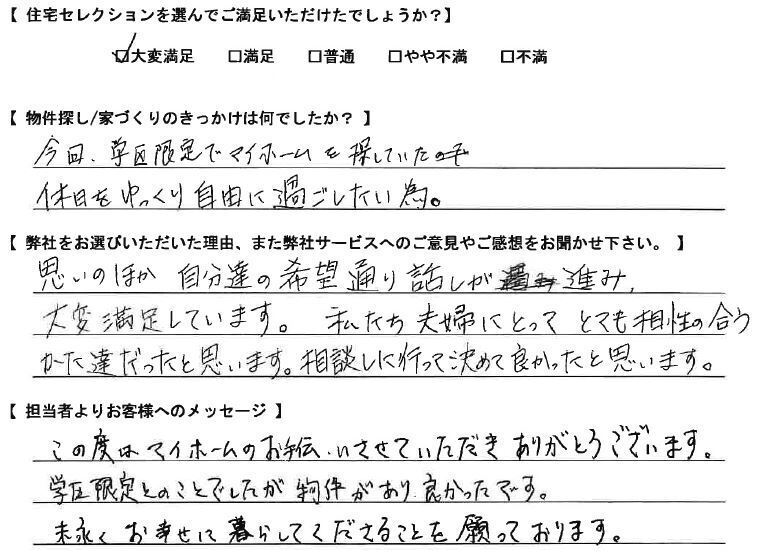 【 住宅セレクションを選んでご満足いただけたでしょうか？】
☑大変満足 □満足 □普通 □やや不満 □不満
【 物件探し/家づくりのきっかけは何でしたか？ 】
今回、学区限定でマイホームを探していた
休日をゆっくり自由に過ごしたい為。
【 弊社をお選びいただいた理由、また弊社サービスへのご意見やご感想をお聞かせ下さい。 】
思いのほか 自分達の希望通り話しが 進み、
大変満足しています。 私たち夫婦にとって とても相性の合う
かた達だったと思います。相談しに行って決めて良かったと思います。
【 担当者よりお客様へのメッセージ 】
この度は マイホームのお手伝いさせていただき ありがとうございます。
学区限定とのことでしたが 物件があり、良かったです。
末永く お幸せに 暮らしてくださることを 願っております。